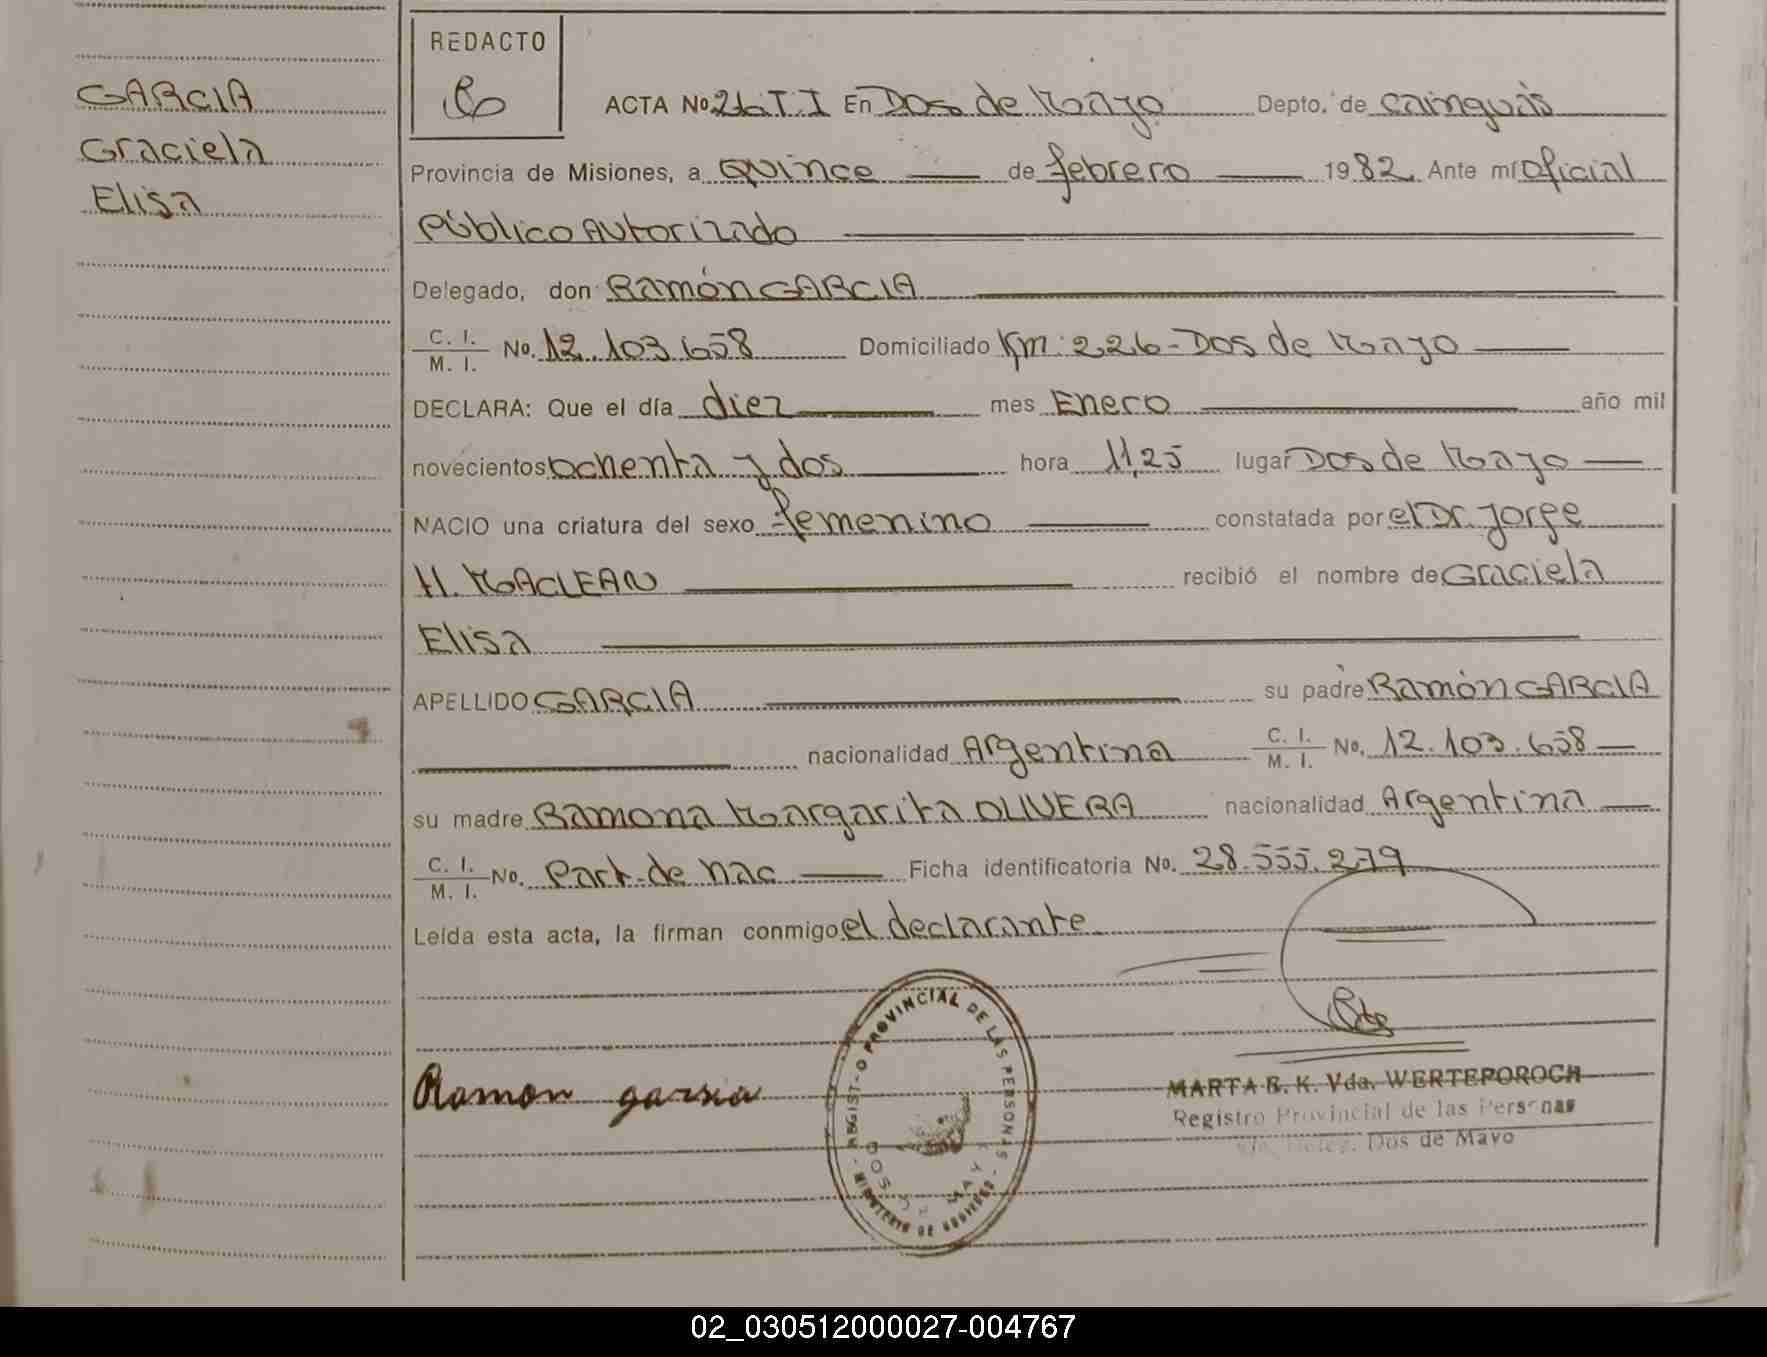 GARCIA
Graciela
Elisa
REDACTO
ACTA No 26 T I En Dos de Mayo Depto. de cainguás
Provincia de Misiones, a Quince — de febrero — 1982 Ante mí oficial
Público Autorizado
Delegado, don Ramón GARCIA
C. I. / M. I. No. 12.103.658 Domiciliado Km: 226 - Dos de Mayo —
DECLARA: Que el día diez mes Enero año mil
novecientos ochenta y dos hora 11,25 lugar Dos de Mayo —
NACIO una criatura del sexo femenino — constatada por el Dr. Jorge
H. MACLEAN recibió el nombre de Graciela
Elisa
APELLIDO GARCIA su padre Ramón GARCIA
nacionalidad Argentina C. I. / M. I. No. 12.103.658 —
su madre Ramona Margarita OLIVERA nacionalidad Argentina —
C. I. / M. I. No. Part. de Nac — Ficha identificatoria No. 28.555.279
Leída esta acta, la firman conmigo el declarante
Ramon garsia
REGISTRO PROVINCIAL DE LAS PERSONAS
MINISTERIO DE GOBIERNO
DOS DE MAYO
MARTA B. K. Vda. WERTEPOROCH
Registro Provincial de las Personas
Dos de Mayo
02_030512000027-004767